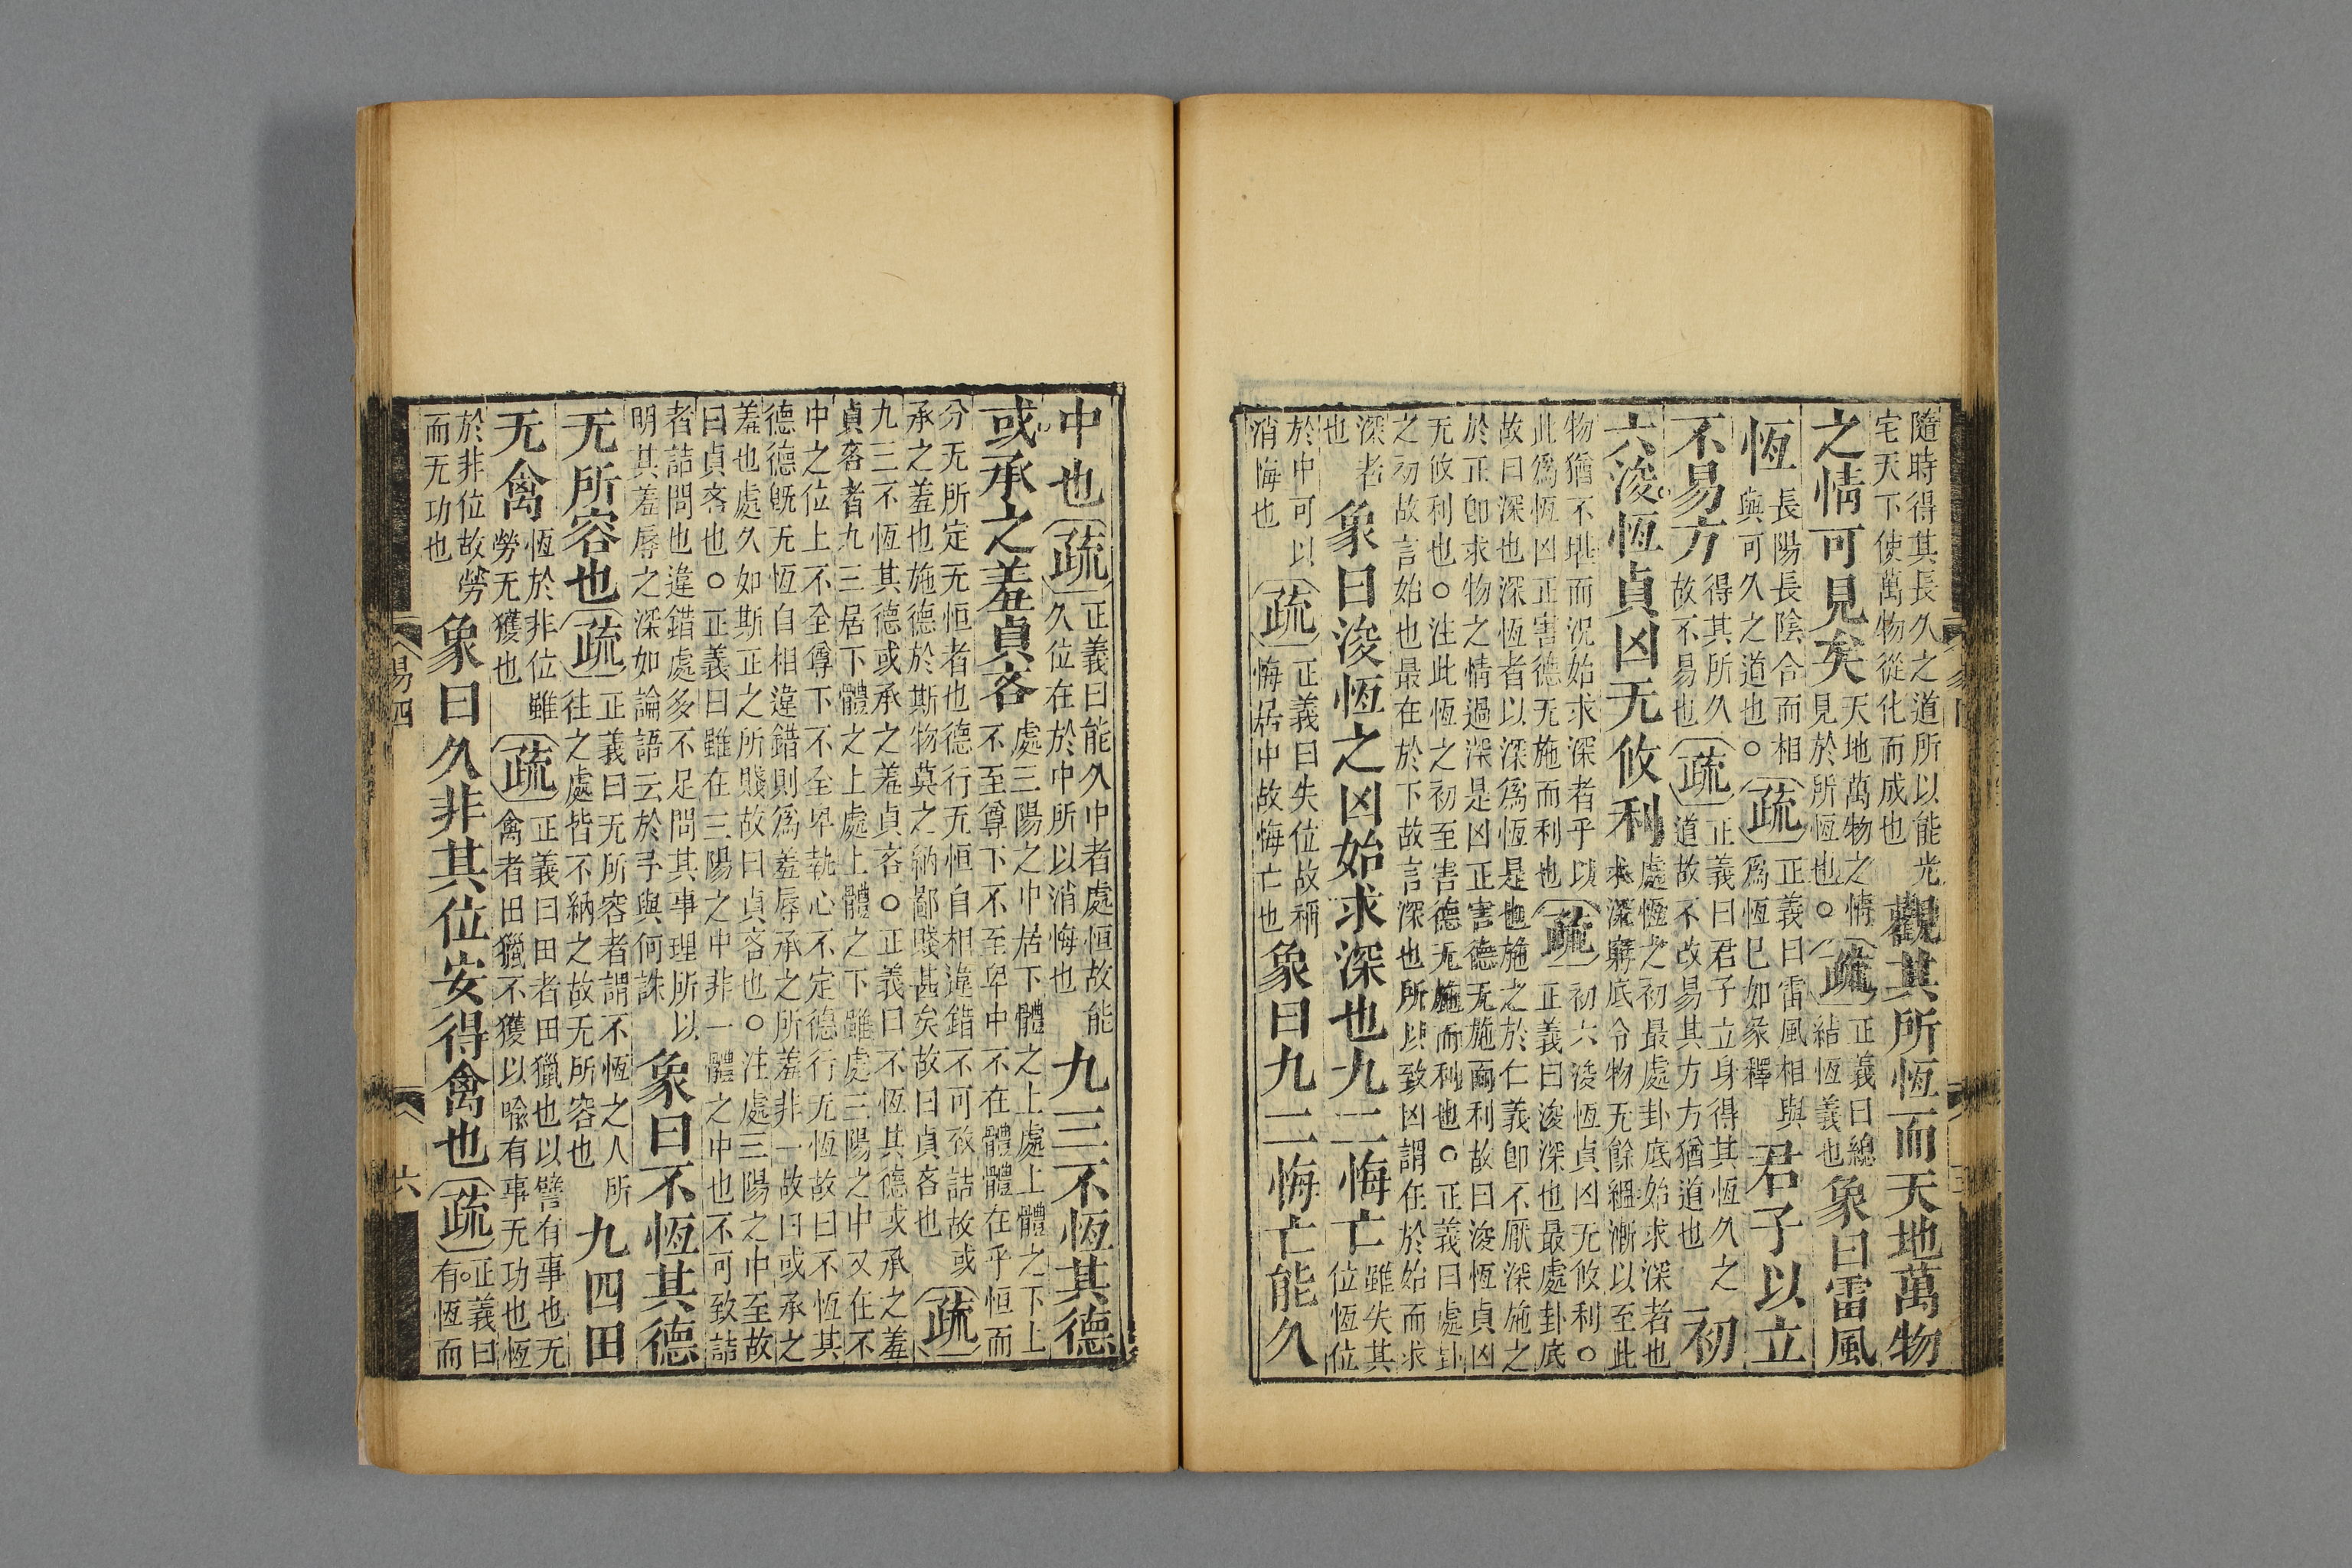 隨時得其長久之道所以能光宅天下使萬物從化而成也觀其所恆而天地萬物
之情可見矣天地萬物之情見於所恆也○疏正義曰總結恆義也象曰雷風
恆長陽長陰合而相與可久之道也○疏正義曰雷風相與爲恆已如彖釋君子以立
不易方得其所久故不易也疏正義曰君子立身得其恆久之道故不改易其方方猶道也初
六浚恆貞凶无攸利處恆之初最處卦底始求深者也求深窮底令物无餘縕漸以至此
物猶不堪而況始求深者乎以此爲恆凶正害德无施而利也疏初六浚恆貞凶无攸利○正義曰浚深也最處卦底
故曰深也深恆者以深爲恆是也施之於仁義即不厭深施之於正即求物之情過深是凶正害德无施而利故曰浚恆貞凶
无攸利也○注此恆之初至害德无施而利也○正義曰處卦之初故言始也最在於下故言深也所以致凶謂在於始而求
深者也象曰浚恆之凶始求深也九二悔亡雖失其位恆位
於中可以消悔也疏正義曰失位故稱悔居中故悔亡也象曰九二悔亡能久
中也疏正義曰能久中者處恒故能久位在於中所以消悔也九三不恆其德
或承之羞貞吝處三陽之中居下體之上處上體之下上不至尊下不至卑中不在體體在乎恒而
分无所定无恒者也德行无恒自相違錯不可致詰故或承之羞也施德於斯物莫之納鄙賤甚矣故曰貞吝也疏
九三不恆其德或承之羞貞吝○正義曰不恆其德或承之羞貞吝者九三居下體之上處上體之下雖處三陽之中又在不
中之位上不全尊下不至卑執心不定德行无恆故曰不恆其德德既无恆自相違錯則爲羞辱承之所羞非一故曰或承之
羞也處久如斯正之所賤故曰貞吝也○注處三陽之中至故曰貞吝也○正義曰雖在三陽之中非一體之中也不可致詰
者詰問也違錯處多不足問其事理所以明其羞辱之深如論語云於予與何誅象曰不恆其德
无所容也疏正義曰无所容者謂不恆之人所往之處皆不納之故无所容也九四田
无禽恆於非位雖勞无獲也疏正義曰田者田獵也以譬有事也无禽者田獵不獲以喻有事无功也恆
於非位故勞而无功也象曰久非其位安得禽也疏正義曰有恆而
易四
六